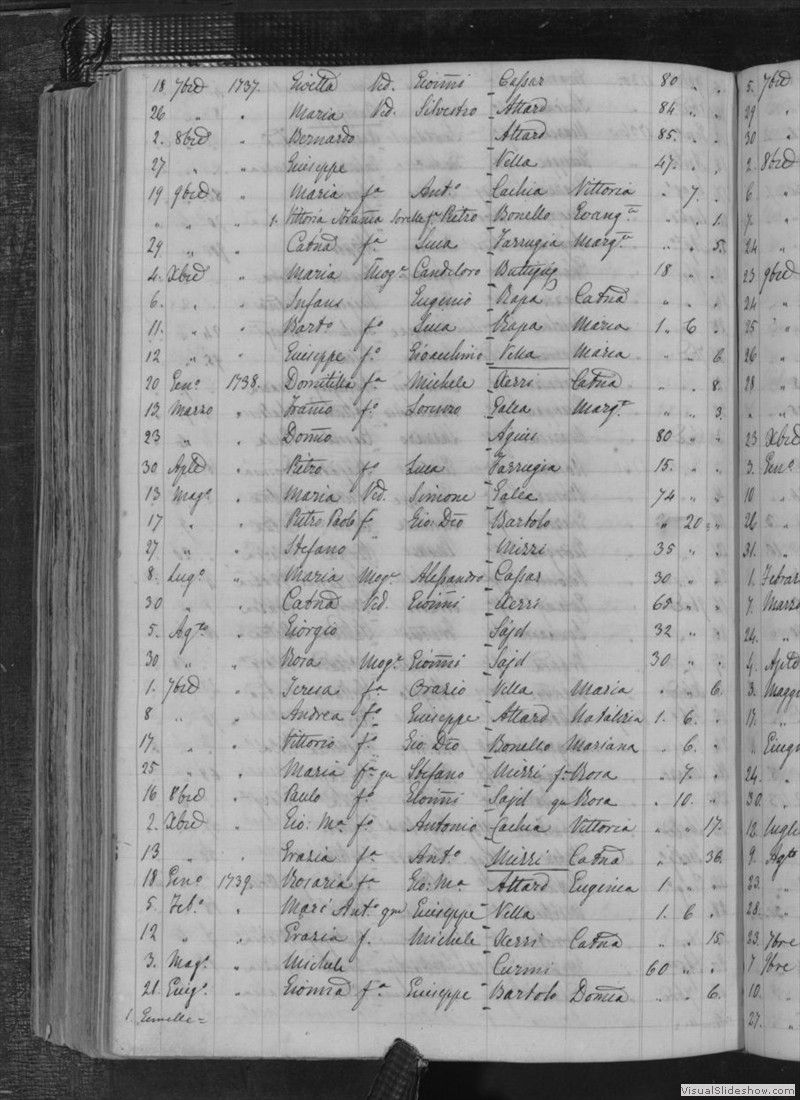 18 7bre 1737. Gioetta Ved. Gioanni Cassar 80 " "
26 " " Maria Ved. Silvestro Attard 84 " "
2. 8bre " Bernardo Attard 85. " "
27 " " Giuseppe Vella 47. " "
19 9bre " Maria fa Anto Cachia Vittoria " 7. "
" " " 1. Vittoria sorella fa Pietro Bonello Evanga " " 1.
29 " " Catna fa Luca Farrugia Marga " " 5.
4. Xbre " Maria Moge Candeloro Buttigig 18 " "
6. " " Infans Eugenio Rapa Catna " " "
11. " " Barto fo Luca Rapa Maria 1. 6 "
12 " " Giuseppe fo Gioachino Vella Maria " " 6
20 Geno 1738. Domitilla fa Michele Xerri Catna " " 8.
13 Marzo " fo Lorenzo Galea Marga " " 3.
23 " " Agius 80 " "
30 Aple " Pietro fo Luca Farrugia 15. " "
13 Mago " Maria Ved. Simone Galea 74 " "
17 " " Pietro Paolo f. Gio: Dio Bartolo " 20 "
27 " " Stefano Mizzi 35 " "
8. Lugo " Maria Moge Alessandro Cassar 30 " "
30 " " Catna Ved. Gioanni Xerri 68 " "
5. Agto " Giorgio Sajd 32 " "
30 " " Rosa Moge Gioanni Sajd 30 " "
1. 7bre " Teresa fa Orazio Vella Maria " " 6.
8 " " Andrea fo Giuseppe Attard Natalizia 1. 6. "
17. " " Vittorio fo Gio: Dio Bonello Mariana " 6. "
25 " " Maria fa qm Stefano Mizzi f. Rosa " 7. "
16 8bre " Paulo fo Gioanni Sajd qm Rosa " 10. "
2. Xbre " Gio: Ma fo Antonio Cachia Vittoria " " 17.
13 " " Grazia fa Anto Mizzi Catna " " 36.
18 Geno 1739. Rosaria fa Gio: Ma Attard Eugenia 1 " "
5. Feb.o " Anto qm Giuseppe Vella 1. 6 "
12 " " Grazia f. Michele Xerri Catna " " 15.
3. Mago " Michele Curmi 60 " "
21. Giugo " fa Giuseppe Bartolo " " 6.
1. Gemelle =
5. 7bre
29 "
30 "
2. 8bre
6 "
7. "
24 "
23 9bre
24 "
25 "
26 "
28 "
" "
23 Xbre
3. Geno
10 "
26 "
31. "
1. Febar
7. Marzo
24. "
4. Aple
3. Maggi
13. "
Giug
24. "
30. "
13. Lugli
9. Agto
23. "
28. "
23. 7bre
7 9bre
10. "
27. "
VisualSlideshow.com